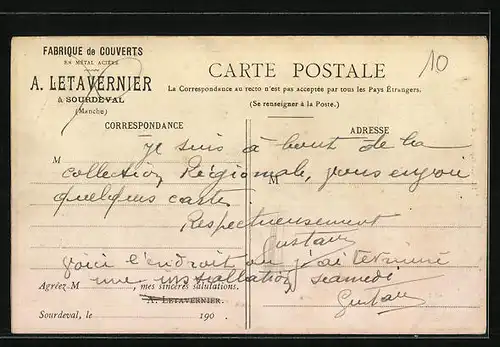 FABRIQUE de COUVERTS
EN METAL ACIÉRÉ
A. LETAVERNIER
à SOURDEVAL
(Manche)
CARTE POSTALE
La Correspondance au recto n'est pas acceptée par tous les Pays Étrangers.
(Se renseigner à la Poste.)
10
CORRESPONDANCE
ADRESSE
je suis à bout de la
M
collection Régionale, vous envoi
M
quelques cartes
Respectueusement
Gustave
Voici l'endroit ou j'ai terminé
une installation samedi
Agréez M , mes sincères salutations.
A. LETAVERNIER.
Gustave
Sourdeval, le 190